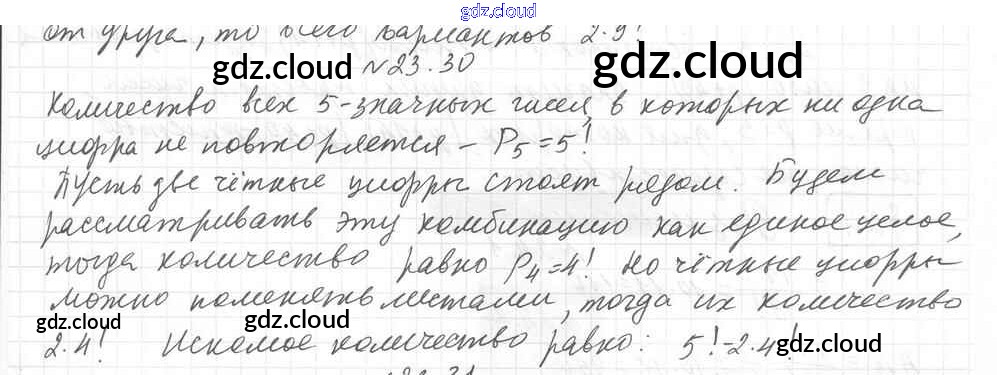 gdz.cloud
от друга, то всего вариантов 2·9!
gdz.cloud
gdz.cloud
№23.30
Количество всех 5-значных чисел, в которых ни одна
цифра не повторяется – P₅=5!
Пусть две чётные цифры стоят рядом. Будем
рассматривать эту комбинацию как единое целое,
тогда количество равно P₄=4! Но чётные цифры
можно поменять местами, тогда их количество
gdz.cloud
gdz.cloud
2·4! Искомое количество равно: 5!-2·4!
gdz.cloud